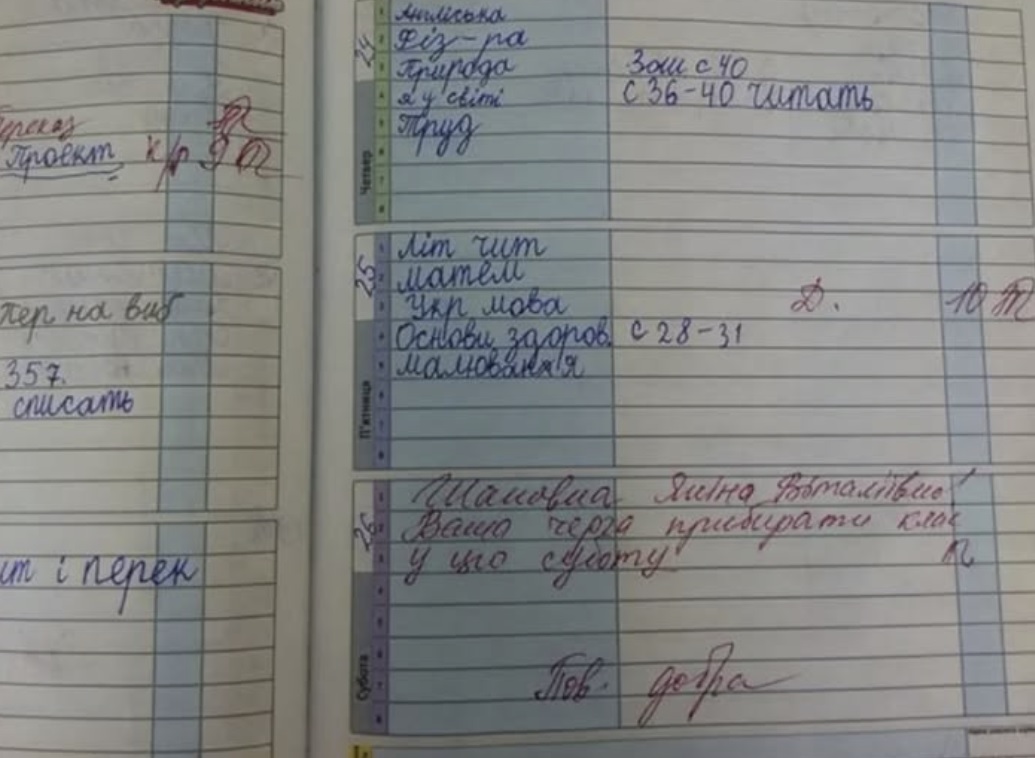 Переказ
Проект к/р 9
пер на виб
357.
списать
і перек
24
Четвер
1 Англіська
2 Фіз-ра
3 Природа Зош с 40
4 я у світі с 36-40 читать
5 Труд
6
7
8
25
П'ятниця
1 Літ чит
2 матем
3 Укр мова Д. 10
4 Основи здоров. с 28-31
5 малювання
6
7
8
26
Субота
1 Шановна Яніна Віталіївно!
2 Ваша черга прибирати клас
3 у цю суботу
Пов. добра